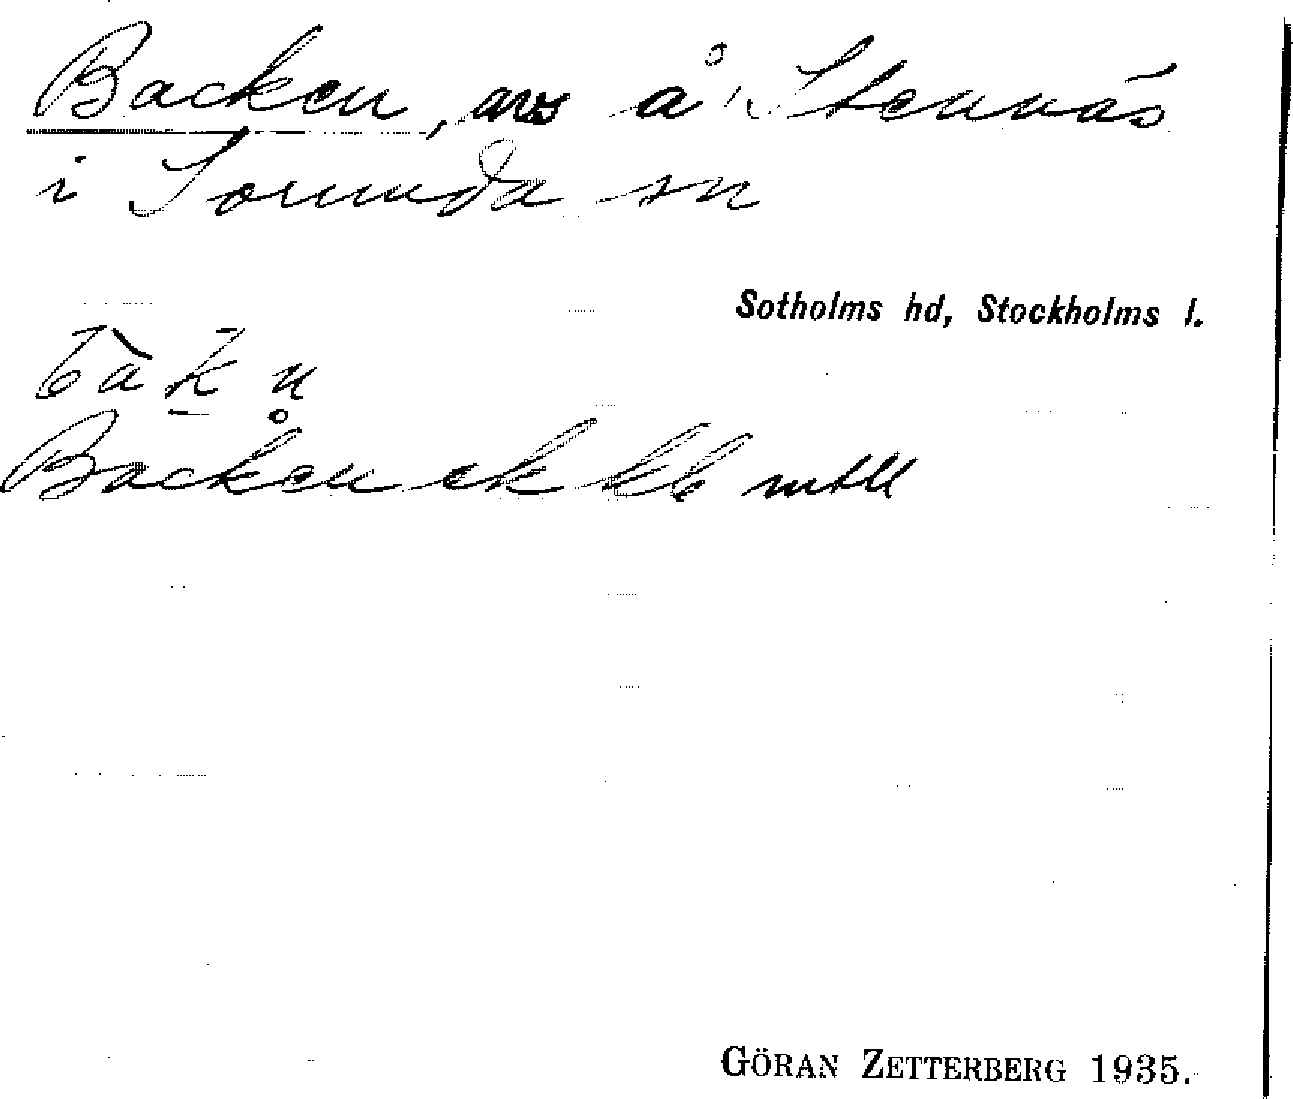 Backen, avs å Stennäs
i Sorunda sn
Sotholms hd, Stockholms l.
bàk̲n̥
Backen ek kb mtll
GÖRAN ZETTERBERG 1935.